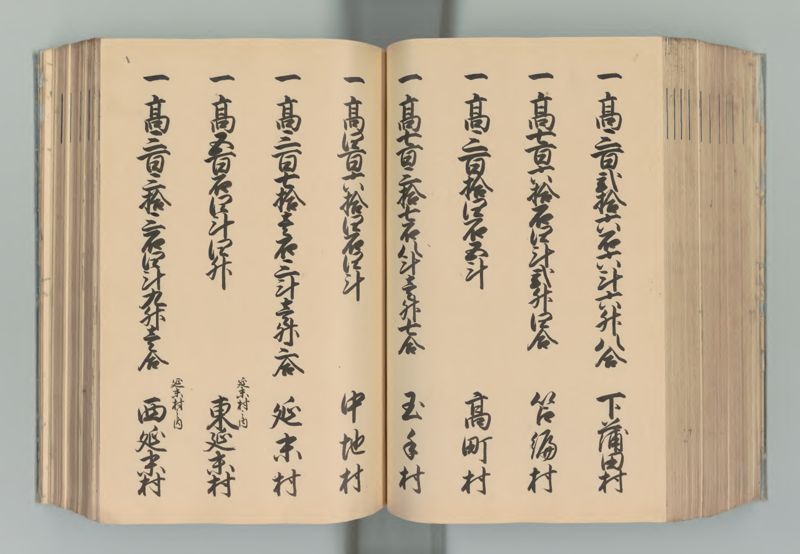 一 高三百弐拾六石六斗六升八合 下蒲田村
一 高七百六拾石四斗弐升四合 笘編村
一 高三百拾四石五斗 高町村
一 高七百三拾七石八斗壱升七合 玉手村
一 高四百六拾四石四斗 中地村
一 高三百七拾壱石三斗壱升二合 延末村
一 高五百石四斗四升 延末村之内 東延末村
一 高三百三拾三石四斗九升壱合 延末村之内 西延末村